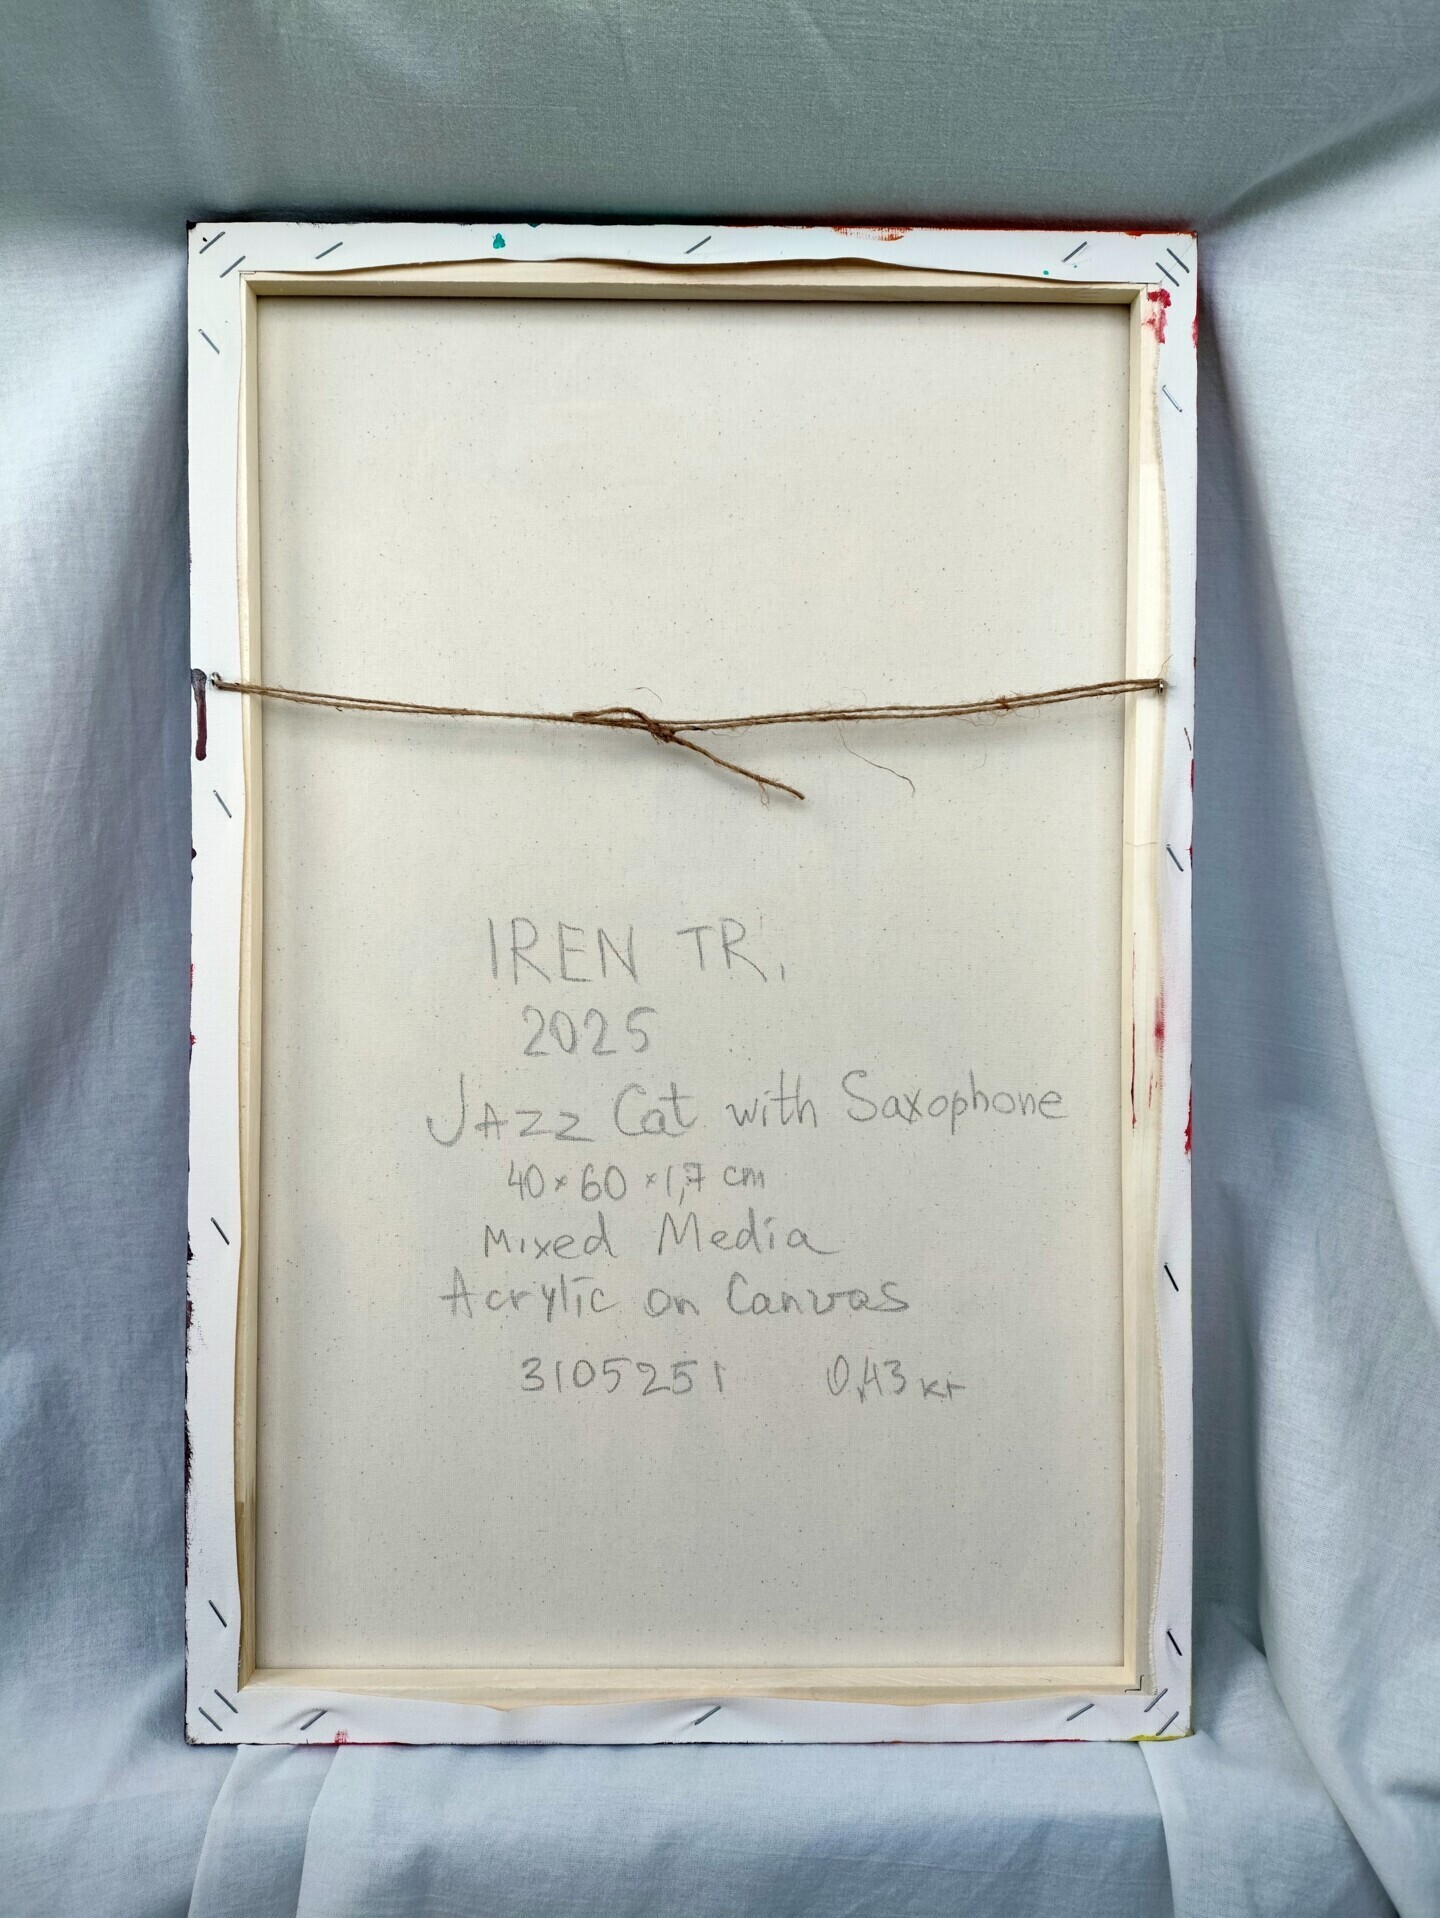 IREN TR.
2025
Jazz Cat with Saxophone
40×60×1,7 cm
Mixed Media
Acrylic on Canvas
3105251 0,43 кг